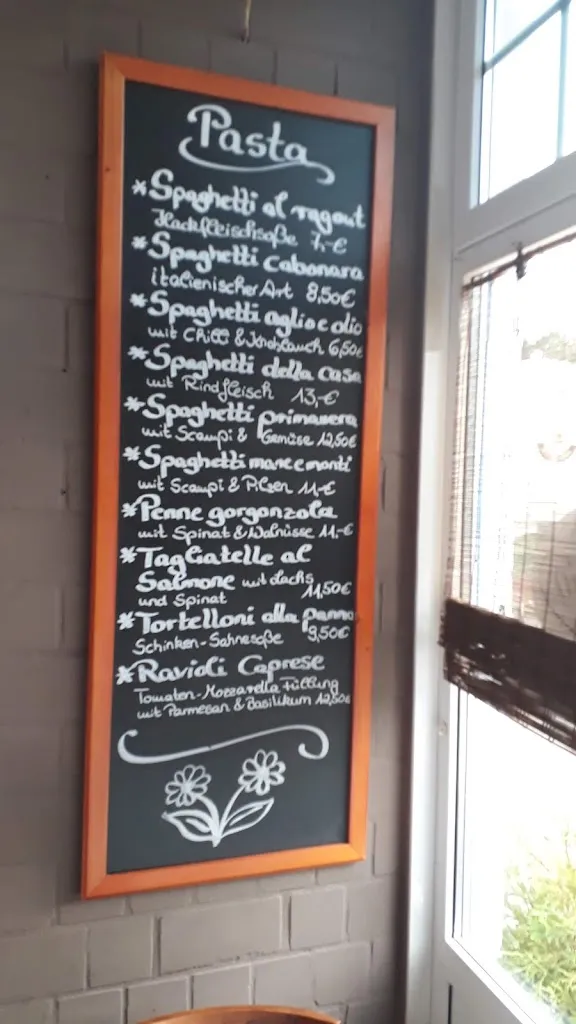 Pasta
*Spaghetti al ragout
Hackfleischsoße 7,-€
*Spaghetti Cabonara
italienischer Art 8,50€
*Spaghetti aglio e olio
mit Chili & Knoblauch 6,50€
*Spaghetti della casa
mit Rindfleisch 13,-€
*Spaghetti primavera
mit Scampi & Gemüse 12,50€
*Spaghetti mare e monti
mit Scampi & Pilzen 11,-€
*Penne gorgonzola
mit Spinat & Walnüsse 11,-€
*Tagliatelle al
Salmone mit Lachs
und Spinat 11,50€
*Tortelloni alla panna
Schinken-Sahnesoße 9,50€
*Ravioli Caprese
Tomaten-Mozzarella Füllung
mit Parmesan & Basilikum 12,50€